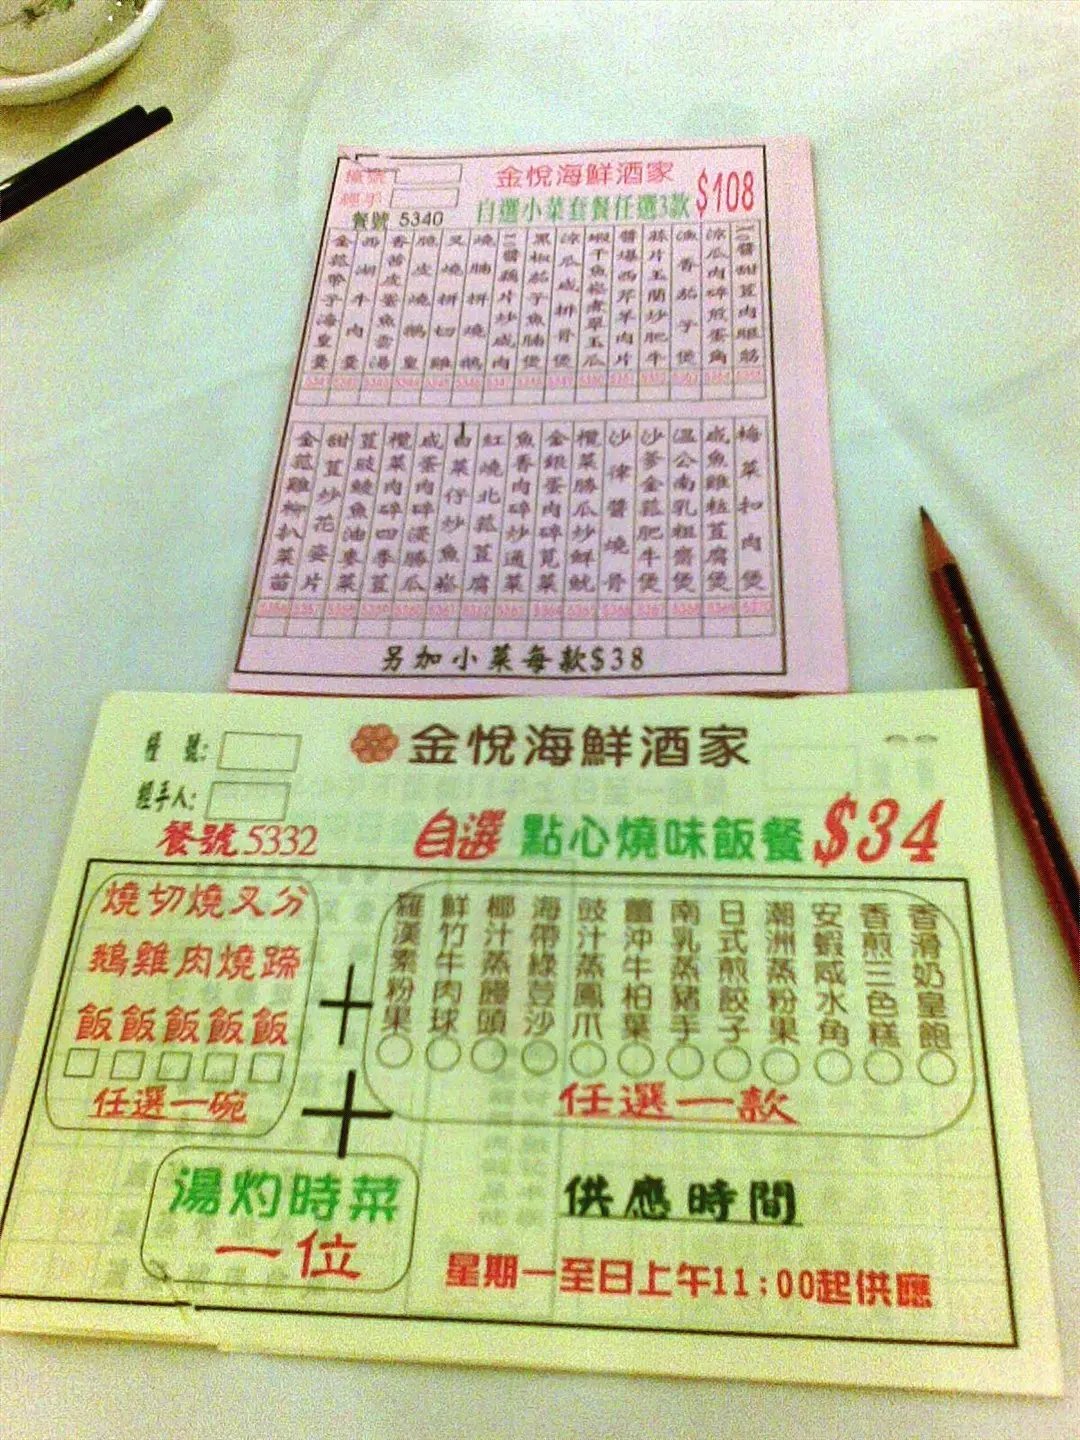 金悅海鮮酒家
自選小菜套餐任選3款 $108
餐號 5340
西湖牛肉羹
脆皮燒鵝皇
叉燒拼切雞
燒腩拼燒鵝
XO醬藕片炒咸肉
黑椒茄子魚腩煲
涼瓜咸排骨煲
蝦干魚崧煮翠玉瓜
醬爆西芹羊肉片
蒜片玉蘭炒肥牛
漁香茄子煲
涼瓜肉碎煎蛋角
金菰雞柳扒菜苗
甜荳炒花姿片
荳豉鯪魚油麥菜
欖菜肉碎四季荳
咸蛋肉碎浸勝瓜
白菜仔炒魚崧
紅燒北菰荳腐
魚香肉碎炒通菜
金銀蛋肉碎莧菜
欖菜勝瓜炒鮮魷
沙律醬燒骨
沙爹金菰肥牛煲
溫公南乳粗齋煲
咸魚雞粒荳腐煲
梅菜扣肉煲
另加小菜每款$38
檯號:
金悅海鮮酒家
經手人:
餐號5332
自選 點心燒味飯餐 $34
燒鵝飯
切雞飯
燒肉飯
叉燒飯
分蹄飯
任選一碗
+
羅漢素粉果
鮮竹牛肉球
椰汁蒸饅頭
海帶綠荳沙
豉汁蒸鳳爪
薑沖牛柏葉
南乳蒸豬手
日式煎餃子
潮洲蒸粉果
安蝦咸水角
香煎三色糕
香滑奶皇飽
任選一款
+
湯灼時菜
一位
供應時間
星期一至日上午11:00起供應